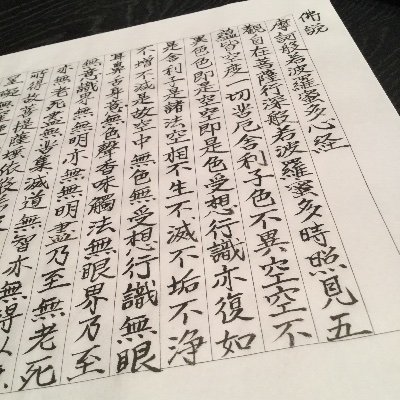 佛説
摩訶般若波羅蜜多心経
觀自在菩薩行深般若波羅蜜多時照見五
蘊皆空度一切苦厄舎利子色不異空空不
異色色即是空空即是色受想行識亦復如
是舎利子是諸法空相不生不滅不垢不浄
不増不減是故空中無色無受想行識無眼
耳鼻舌身意無色聲香味觸法無眼界乃至
無意識界無無明亦無無明盡乃至無老死
亦無老死盡無苦集滅道無智亦無得以
所得故菩提薩埵依般若
罣礙無罣